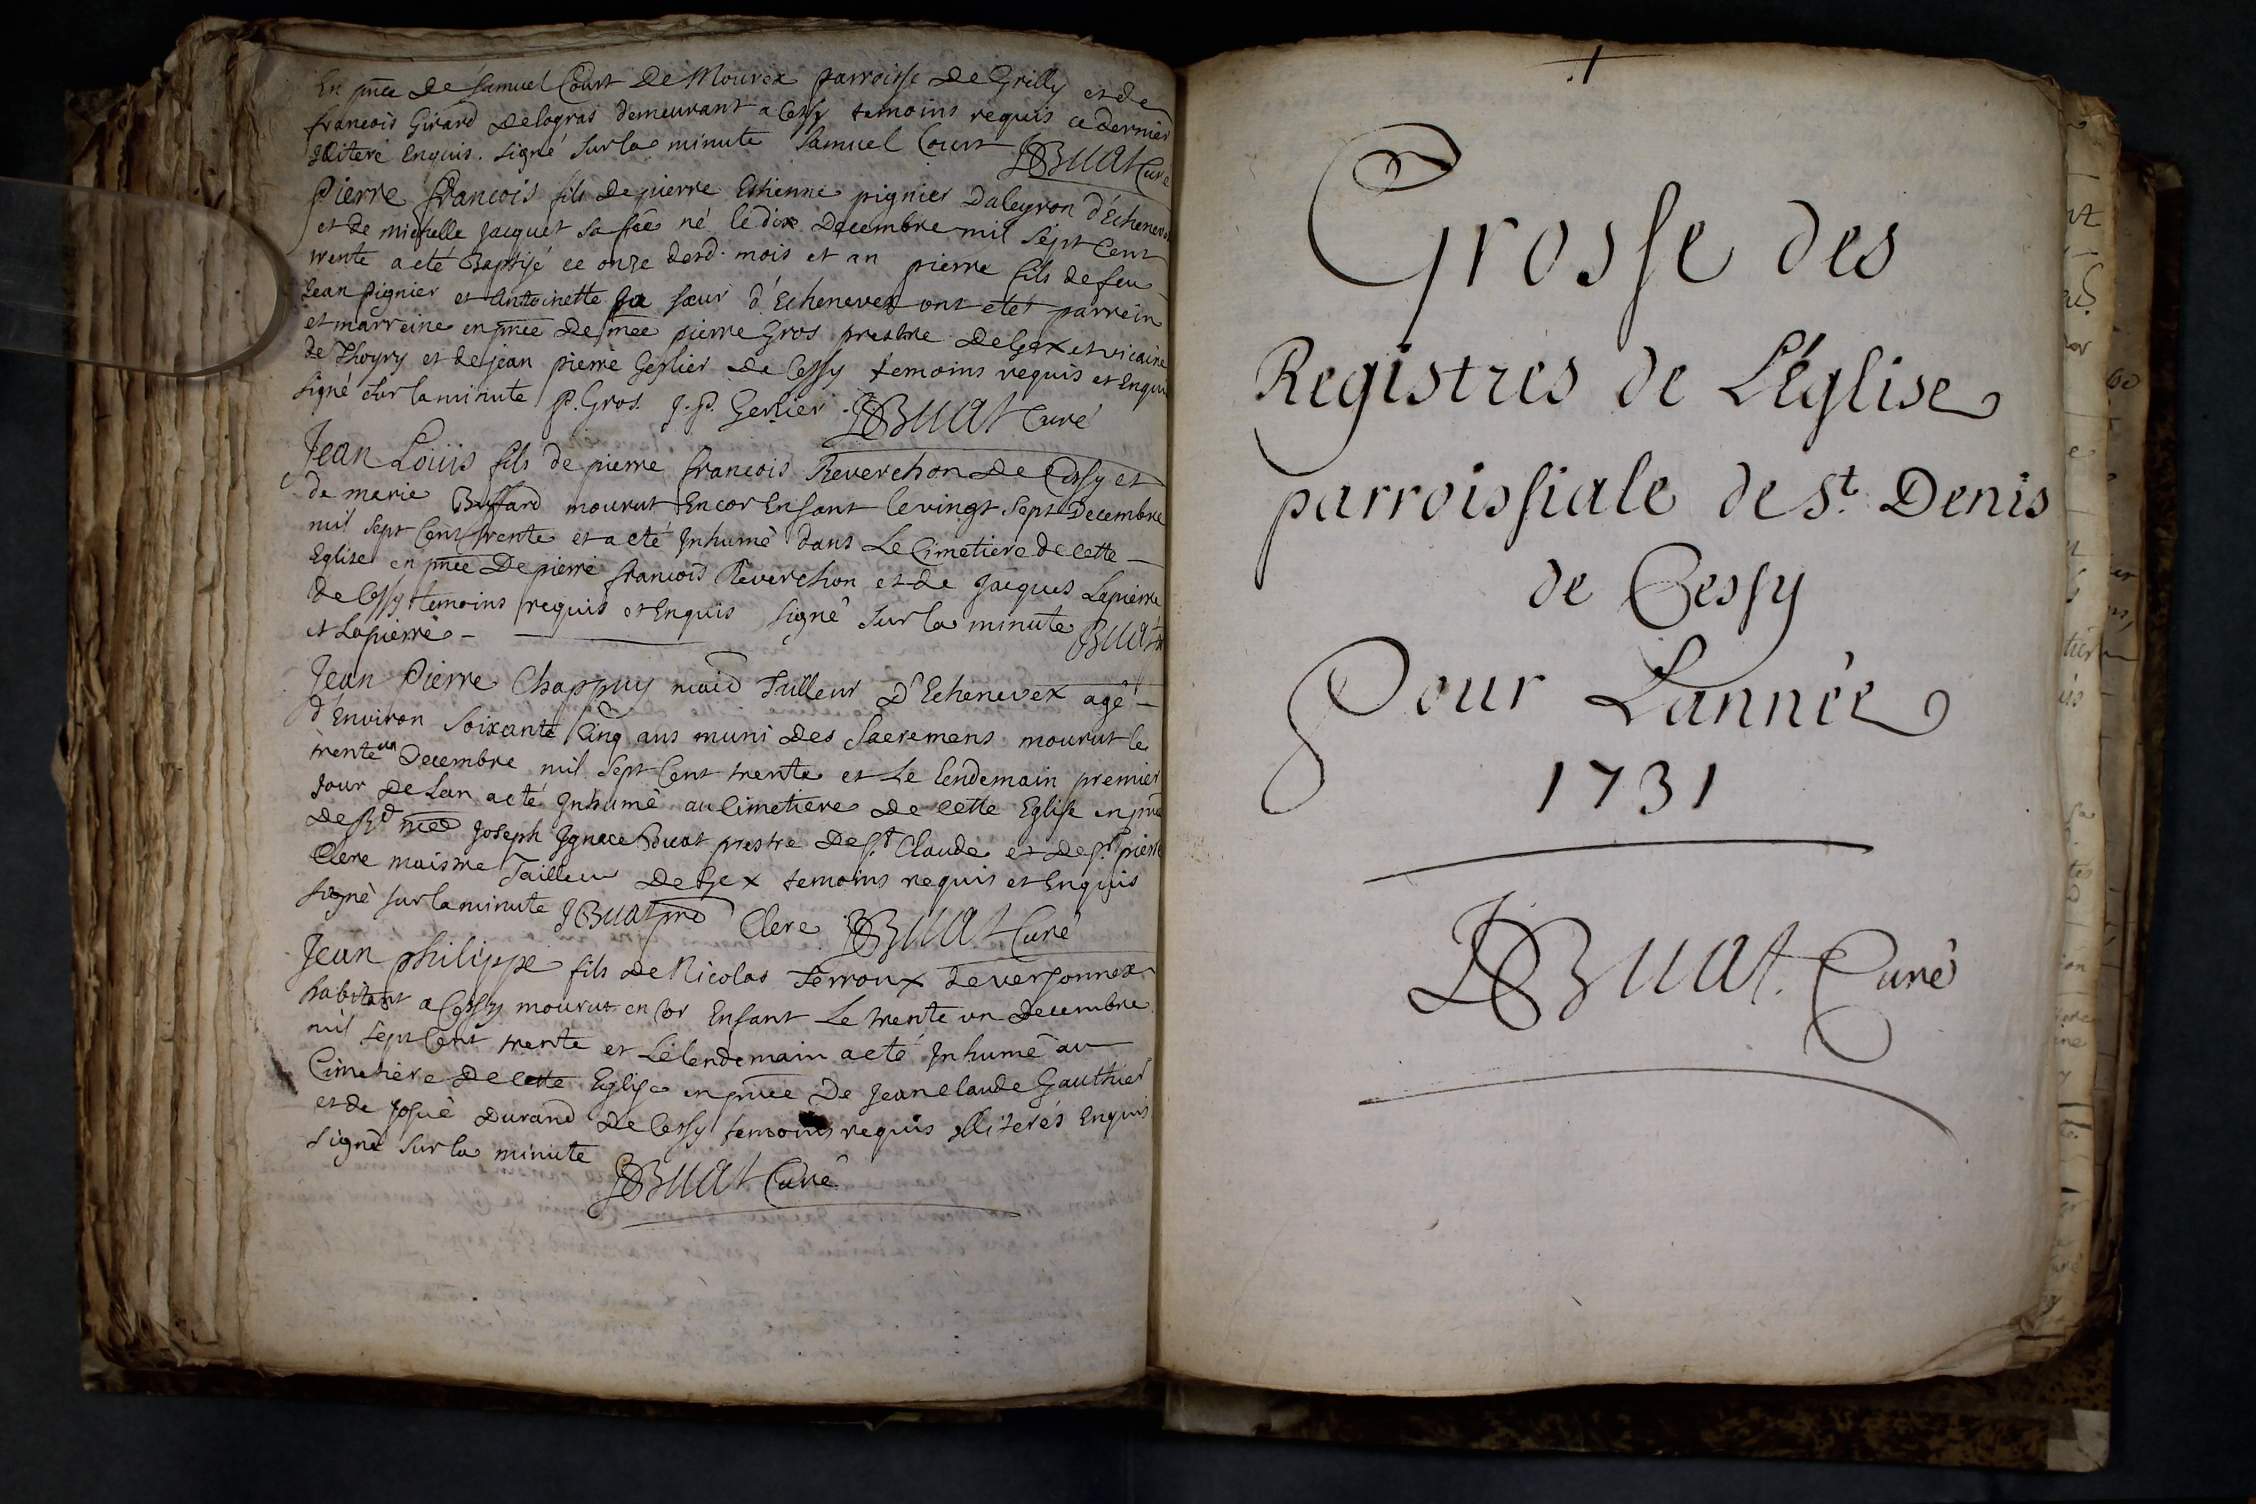 En pnce de Samuel Court de Mourex parroisse de Grilly et de
francois Girard delogras demeurant a Cessy temoins requis ce dernier
Illiteré Enquis. signé sur la minute Samuel Court JBuat Curé
Pierre francois fils de pierre Estienne pignier Daleyron d'Echenevex
et de michelle jacquet sa fae né le dix Decembre mil sept Cent
trente a eté Baptisé ce onze desd. mois et an pierre fils de feu
Jean Pignier et Antoinette sa sœur d'Echenevex ont etés parrein
et marreine en pnce de mre pierre Gros prestre de Gex et vicaire
de Thoyry et de jean pierre Gerlier de Cessy temoins requis et Enquis
signé sur la minute P. Gros. J. P. Gerlier. JBuat Curé
Jean Loüis fils de pierre francois Reverchon de Cessy et
de marie Buffard mourut Encor Enfant le vingt sept Decembre
mil sept Cent trente et a eté Inhumé dans Le Cimetiere de cette
Eglise en pnce De pierre francois Reverchon et de Jacques Lapierre
de Cessy temoins requis et Enquis signé sur la minute Buat
et Lapierre
Jean Pierre Chappuy Tailleur D'Echenevex agé
d'Environ soixante Cinq ans muni des Sacremens mourut le
trente un Decembre mil sept Cent trente et Le lendemain premier
Jour de Lan a eté Inhumé au Cimetiere de cette Eglise en pnce
de Rd mre Joseph Ignace Buat prestre de St. Claude et de Sr. pierre
Clere maistre Tailleur de Gex temoins requis et Enquis
signé sur la minute JBuat Clere. JBuat Curé
Jean philippe fils de Nicolas Terroux de versonnex
habitant a Cessy mourut encor Enfant Le trente un Decembre
mil sept Cent trente et Le lendemain a eté Inhumé au
Cimetiere de cette Eglise en pnce De Jean claude Gauthier
et de Josué Durand de Cessy temoins requis illiterés Enquis
signé sur la minute
JBuat Curé
Grosse des
Registres de L'église
parroissiale de St. Denis
de Cessy
Pour L'année
1731
JBuat. Curé